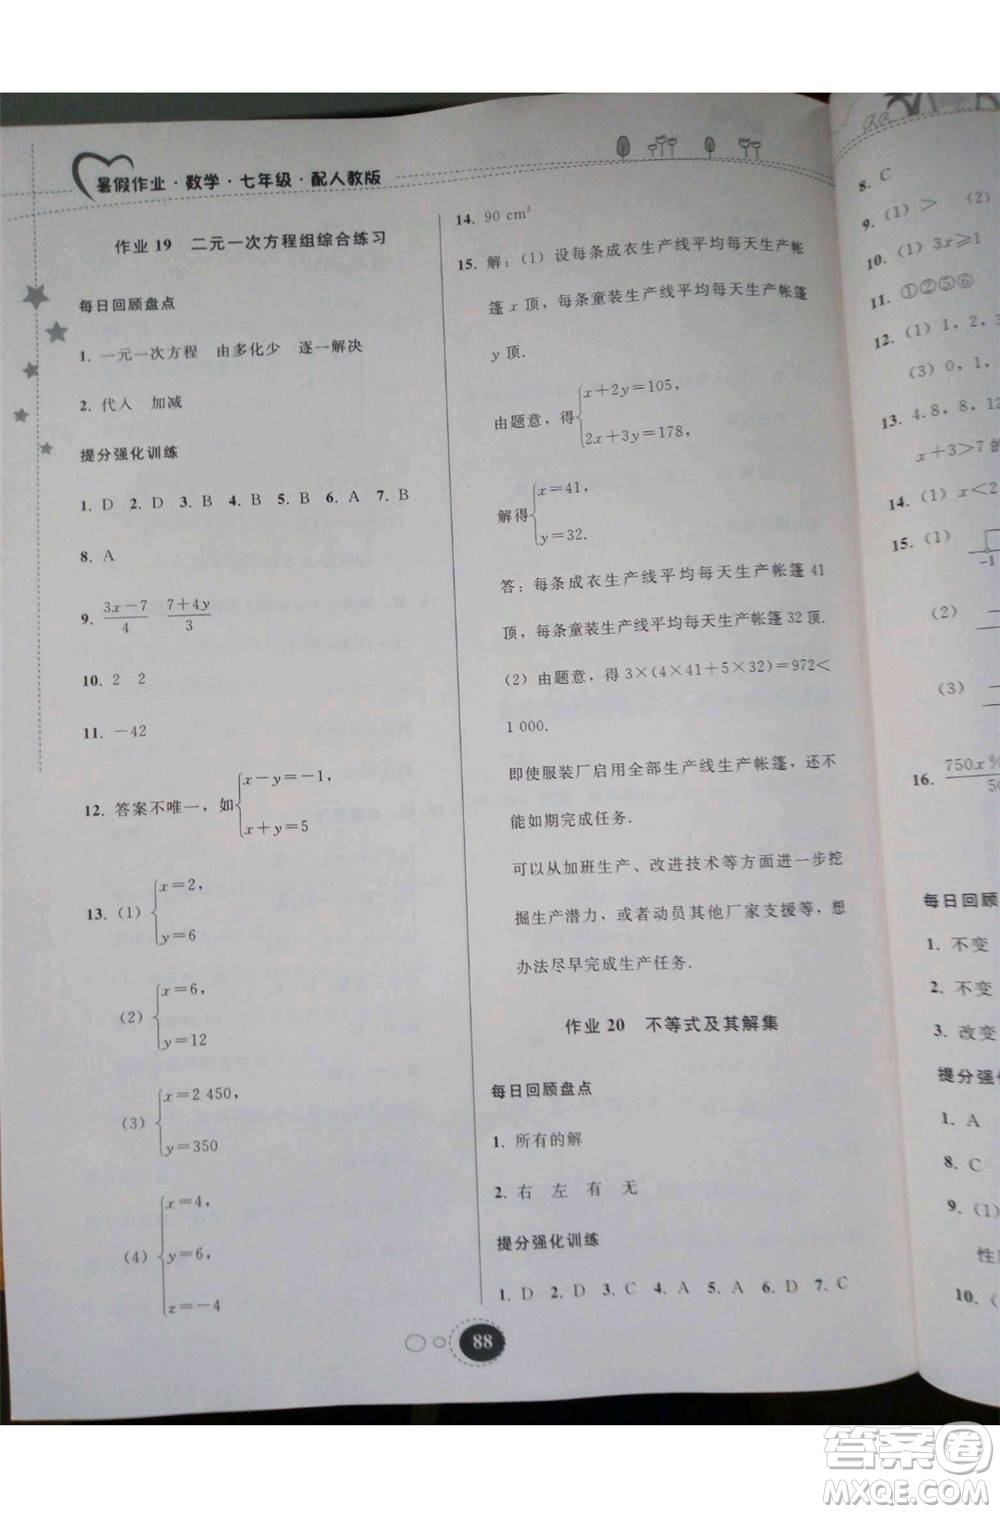 暑假作业·数学·七年级·配人教版
作业 19 二元一次方程组综合练习
每日回顾盘点
1. 一元一次方程 由多化少 逐一解决
2. 代入 加减
提分强化训练
1. D 2. D 3. B 4. B 5. B 6. A 7. B
8. A
9. (3x-7)/4 (7+4y)/3
10. 2 2
11. -42
12. 答案不唯一,如{x-y=-1,
x+y=5
13. (1){x=2,
y=6
(2){x=6,
y=12
(3){x=2 450,
y=350
(4){x=4,
y=6,
z=-4
14. 90 cm³
15. 解:(1)设每条成衣生产线平均每天生产帐
篷 x 顶,每条童装生产线平均每天生产帐篷
y 顶.
由题意,得{x+2y=105,
2x+3y=178,
解得{x=41,
y=32.
答:每条成衣生产线平均每天生产帐篷 41
顶,每条童装生产线平均每天生产帐篷 32 顶.
(2)由题意,得 3×(4×41+5×32)=972<
1 000.
即使服装厂启用全部生产线生产帐篷,还不
能如期完成任务.
可以从加班生产、改进技术等方面进一步挖
掘生产潜力,或者动员其他厂家支援等,想
办法尽早完成生产任务.
作业 20 不等式及其解集
每日回顾盘点
1. 所有的解
2. 右 左 有 无
提分强化训练
1. D 2. D 3. C 4. A 5. A 6. D 7. C
88
8. C
9. (1)> (2)
10. (1)3x≥1
11. ①②⑤⑥
12. (1)1,2,3
(3)0,1,
13. 4.8,8,12
x+3>7 的
14. (1)x<2
15. (1)
-1
(2)
(3)
16. 750x%
每日回顾
1. 不变
2. 不变
3. 改变
提分强化
1. A
8. C
9. (1)
性
10. (
答案圈
MXQE.COM